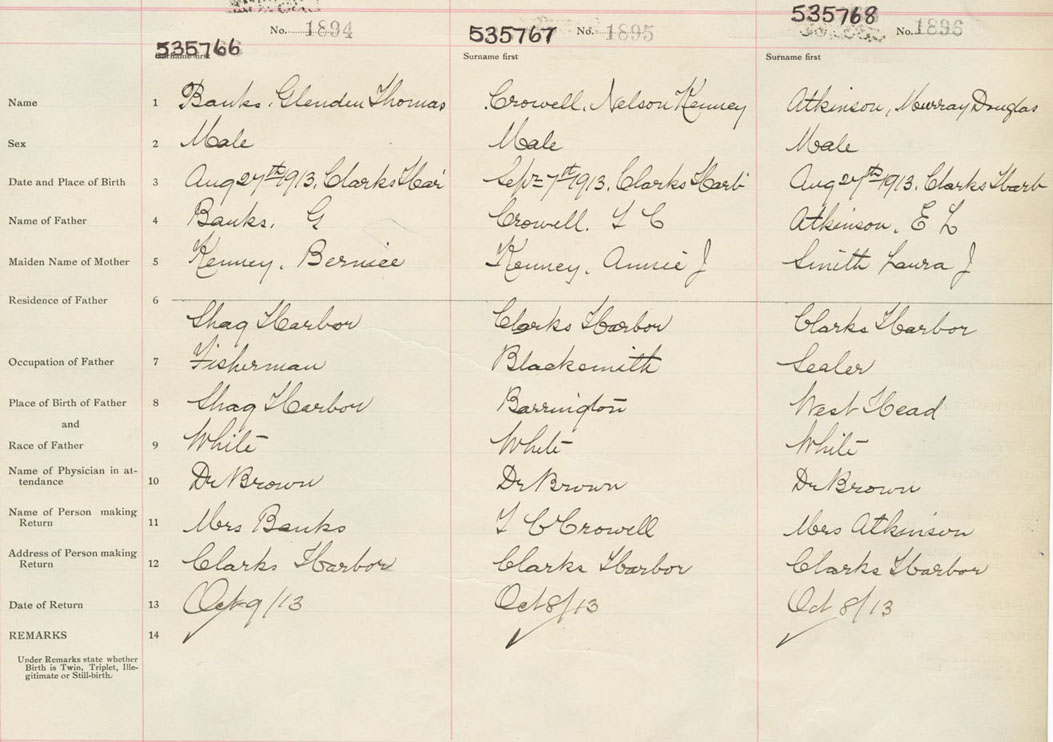 No. 1894
No. 1895
No. 1896
535766
535767
535768
Surname first
Surname first
Surname first
Name 1 Banks, Glenden Thomas Crowell, Nelson Kenney Atkinson, Murray Douglas
Sex 2 Male Male Male
Date and Place of Birth 3 Aug 27th 1913, Clarks Har Sept 7th 1913, Clarks Harb Aug 27th 1913, Clarks Harb
Name of Father 4 Banks, G Crowell, C Atkinson, E L
Maiden Name of Mother 5 Kenney, Bernice Kenney, Annie J Smith Laura J
Residence of Father 6
Shag Harbor Clarks Harbor Clarks Harbor
Occupation of Father 7 Fisherman Blacksmith Sealer
Place of Birth of Father 8 Shag Harbor Barrington West Head
and
Race of Father 9 White White White
Name of Physician in at-
tendance 10 Dr Brown Dr Brown Dr Brown
Name of Person making
Return 11 Mrs Banks C Crowell Mrs Atkinson
Address of Person making
Return 12 Clarks Harbor Clarks Harbor Clarks Harbor
Date of Return 13 Oct 9/13 Oct 8/13 Oct 8/13
REMARKS 14
Under Remarks state whether
Birth is Twin, Triplet, Ille-
gitimate or Still-birth.